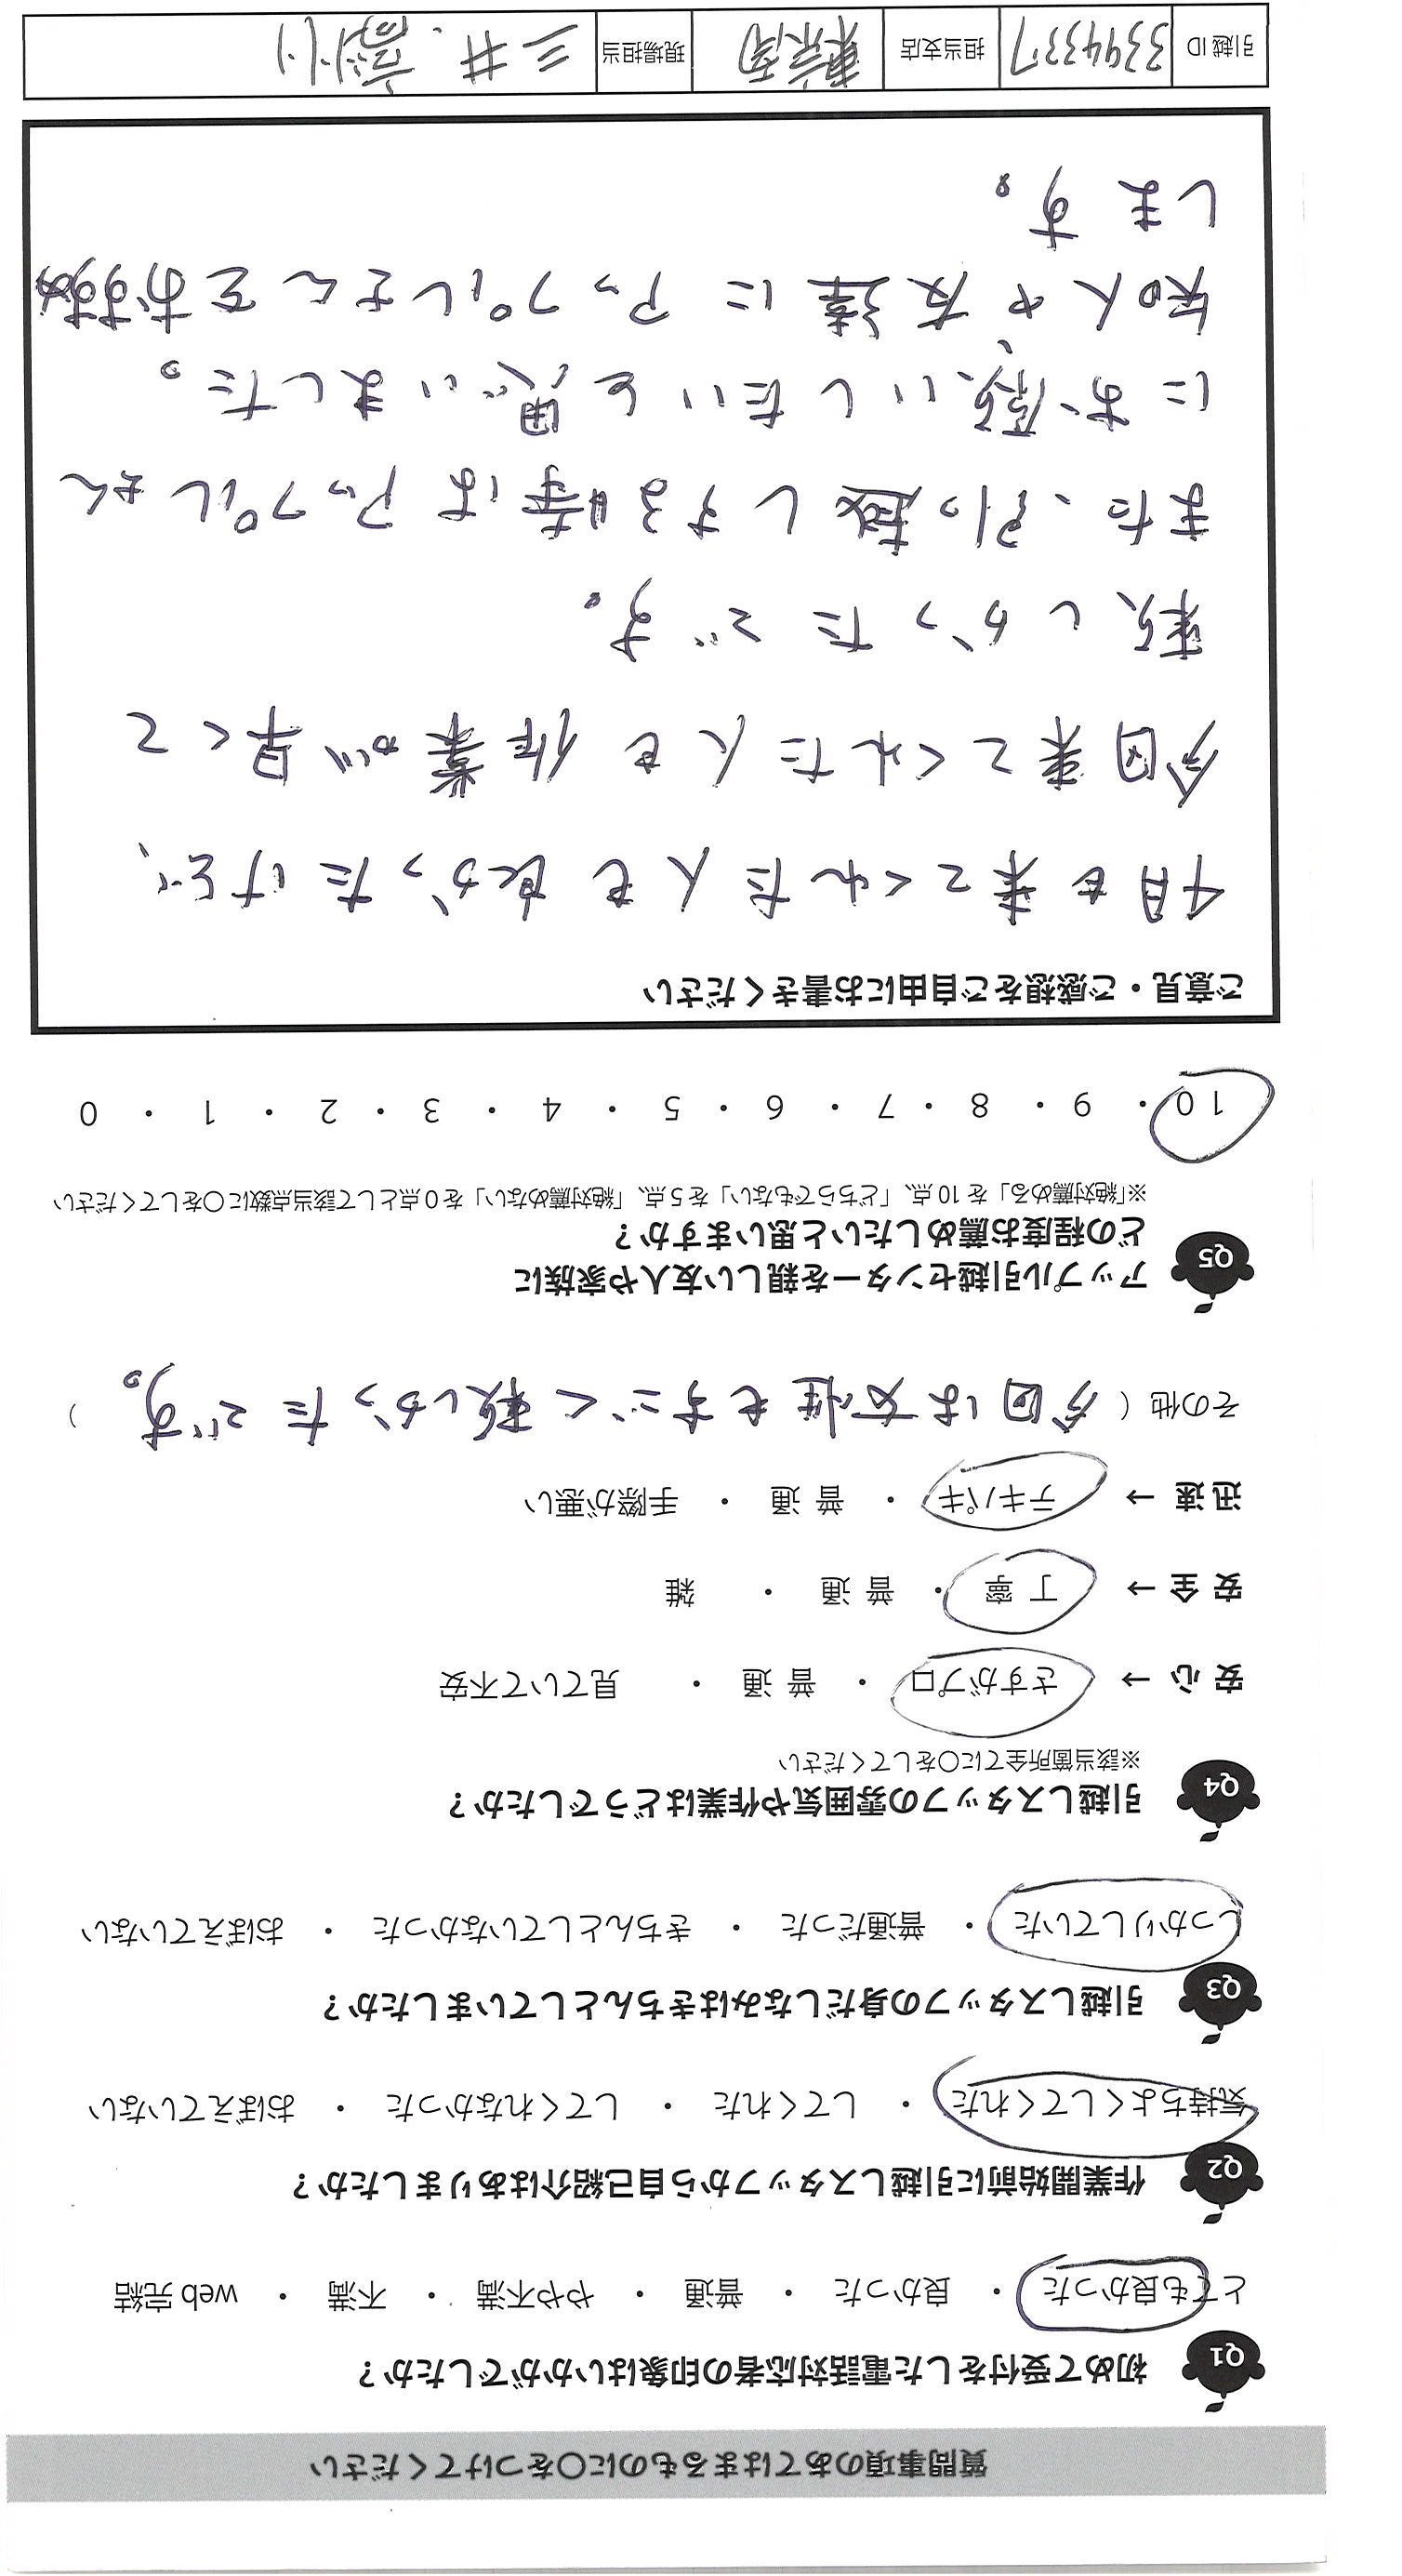 質問事項のあてはまるものに○をつけてください
Q1 初めて受付をした電話対応者の印象はいかがでしたか？
とても良かった ・ 良かった ・ 普通 ・ やや不満 ・ 不満 ・ web 完結
Q2 作業開始前に引越しスタッフから自己紹介はありましたか？
気持ちよくしてくれた ・ してくれた ・ してくれなかった ・ おぼえていない
Q3 引越しスタッフの身だしなみはきちんとしていましたか？
しっかりしていた ・ 普通だった ・ きちんとしていなかった ・ おぼえていない
Q4 引越しスタッフの雰囲気や作業はどうでしたか？
※該当箇所全てに○をしてください
安 心 → さすがプロ ・ 普 通 ・ 見ていて不安
安 全 → 丁 寧 ・ 普 通 ・ 雑
迅 速 → テキパキ ・ 普 通 ・ 手際が悪い
その他（ 今回は女性もすごく頼しかったです。 ）
Q5 アップル引越センターを親しい友人や家族に
どの程度お薦めしたいと思いますか？
※「絶対薦める」を 10 点、「どちらでもない」を 5 点、「絶対薦めない」を 0 点として該当点数に○をしてください
10 ・ 9 ・ 8 ・ 7 ・ 6 ・ 5 ・ 4 ・ 3 ・ 2 ・ 1 ・ 0
ご意見・ご感想をご自由にお書きください
4月も来てくれた人も良かったけど、
今回来てくれた人も作業が早くて
頼しかったです。
また、引っ越しする時はアップルさん
にお願いしたいと思いました。
知人や友達にアップルさんをおすすめ
します。
引越 ID 3394337 担当支店 東京南 現場担当 三井.